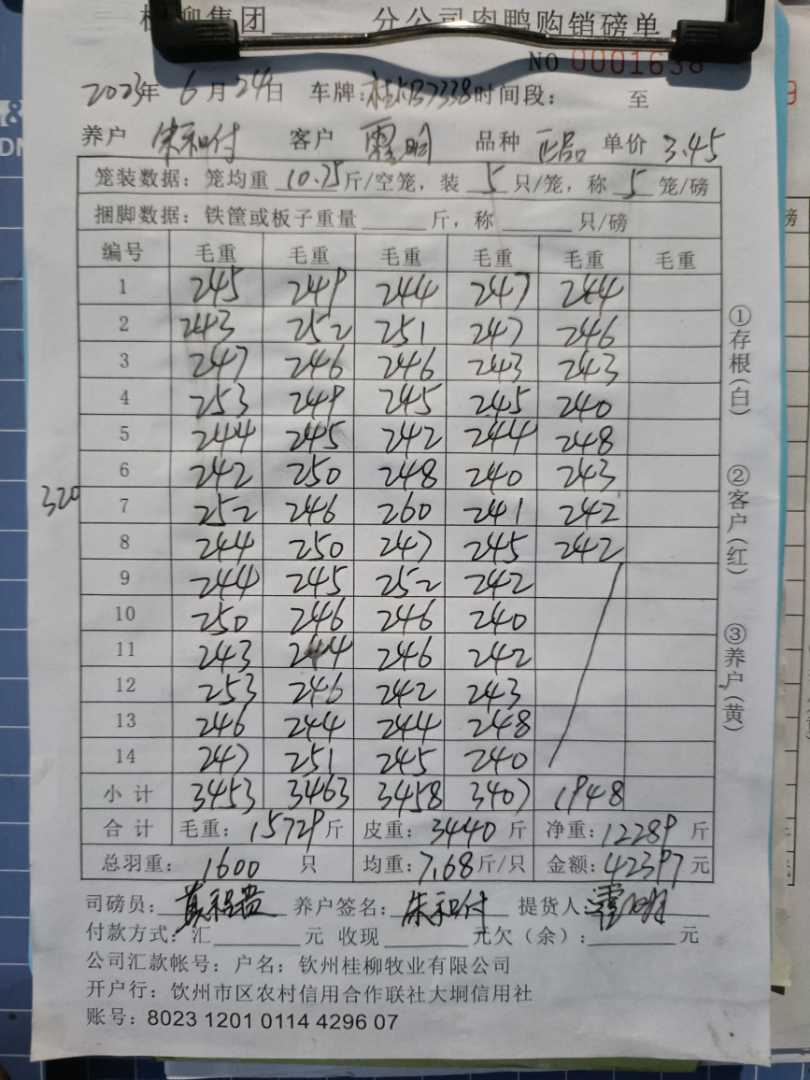 桂柳集团______分公司肉鸭购销磅单
NO 0001638
2023年 6月24日 车牌:桂KB7338时间段: 至
养户 朱和付 客户 覃明 品种 正品 单价 3.45
笼装数据:笼均重 10.75斤/空笼,装 5 只/笼,称 5 笼/磅
捆脚数据:铁筐或板子重量______斤,称______只/磅
编号 毛重 毛重 毛重 毛重 毛重 毛重
1 245 249 244 247 244
2 243 252 251 247 246
3 247 246 246 243 243
4 253 249 245 245 240
5 244 245 242 244 248
6 242 250 248 240 243
320
7 252 246 260 241 242
8 244 250 247 245 242
9 244 245 252 242
10 250 246 246 240
11 243 244 246 242
12 253 246 242 243
13 246 244 244 248
14 247 251 245 240
小计 3453 3463 3458 3407 1948
合计 毛重:15729斤 皮重:3440斤 净重:12289斤
总羽重:1600 只 均重:7.68斤/只 金额:42397元
司磅员: 养户签名:朱和付 提货人:覃明
付款方式:汇______元 收现______元欠(余):______元
公司汇款帐号:户名:钦州桂柳牧业有限公司
开户行:钦州市区农村信用合作联社大垌信用社
账号:8023 1201 0114 4296 07
①存根(白)
②客户(红)
③养户(黄)